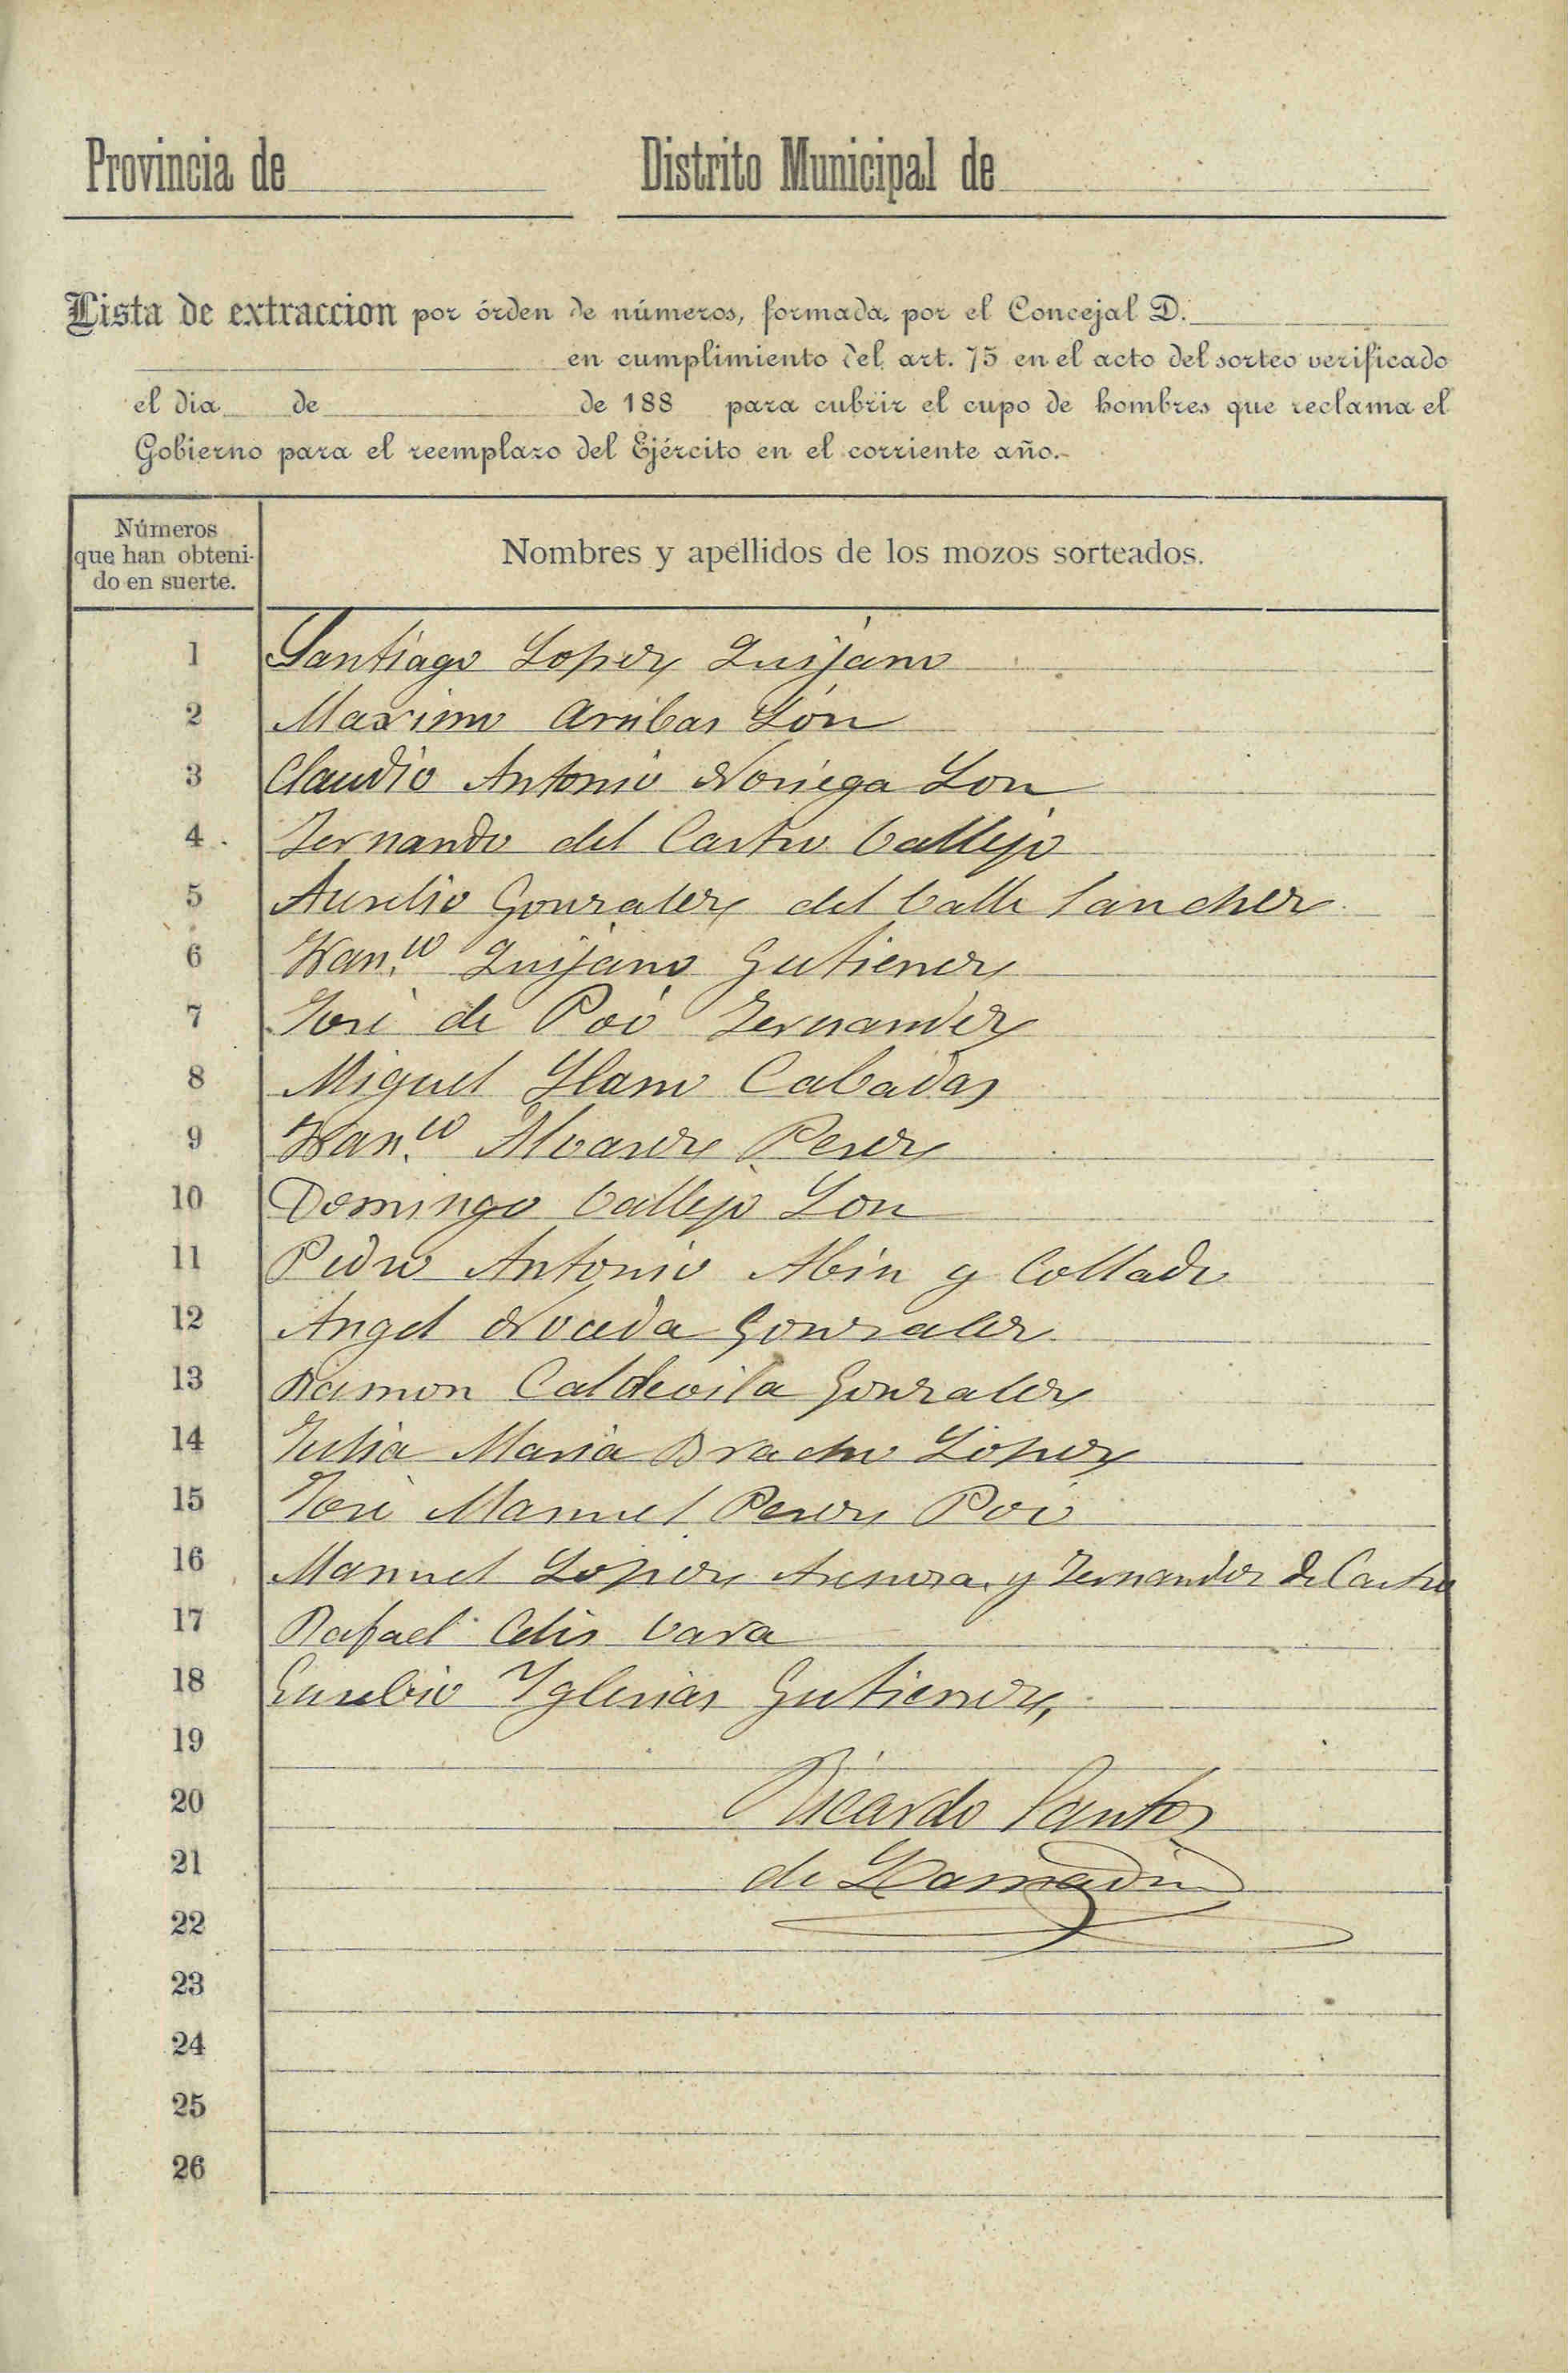 Provincia de
Distrito Municipal de
Lista de extraccion por órden de números, formada por el Concejal D.
en cumplimiento del art. 75 en el acto del sorteo verificado
el dia de de 188 para cubrir el cupo de hombres que reclama el
Gobierno para el reemplazo del Ejército en el corriente año.
Números
que han obteni-
do en suerte.
Nombres y apellidos de los mozos sorteados.
1 Santiago Lopez Quijano
2 Maximo Arribas Lón
3 Claudio Antonio Noriega Lon
4 Fernando del Castro Vallejo
5 Aurelio Gonzalez del Valle Sanchez
6 Fran.co Quijano Gutierrez
7 José de Poó Fernandez
8 Miguel Llano Cabadas
9 Fran.co Alvarez Perez
10 Domingo Vallejo Lon
11 Pedro Antonio Abin y Collado
12 Angel Noceda Gonzalez
13 Ramon Caldevila Gonzalez
14 Julia Maria Bracho López
15 José Manuel Perez Poó
16 Manuel Lopez y Fernandez de Castro
17 Rafael Celis Vara
18 Eusebio Yglesias Gutierrez
19
20
Ricardo Santos
21
de
22
23
24
25
26